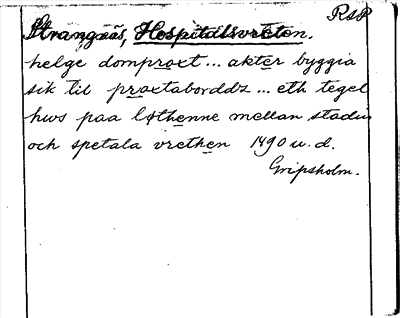 RAP
Strängnäs, Hospitalsvreten.
helge domproxt... akter byggia
sik til proxtaborddz... eth tegel
hws paa løthenne mellan stadin
och spetala vrethen 1490 u. d.
Gripsholm.